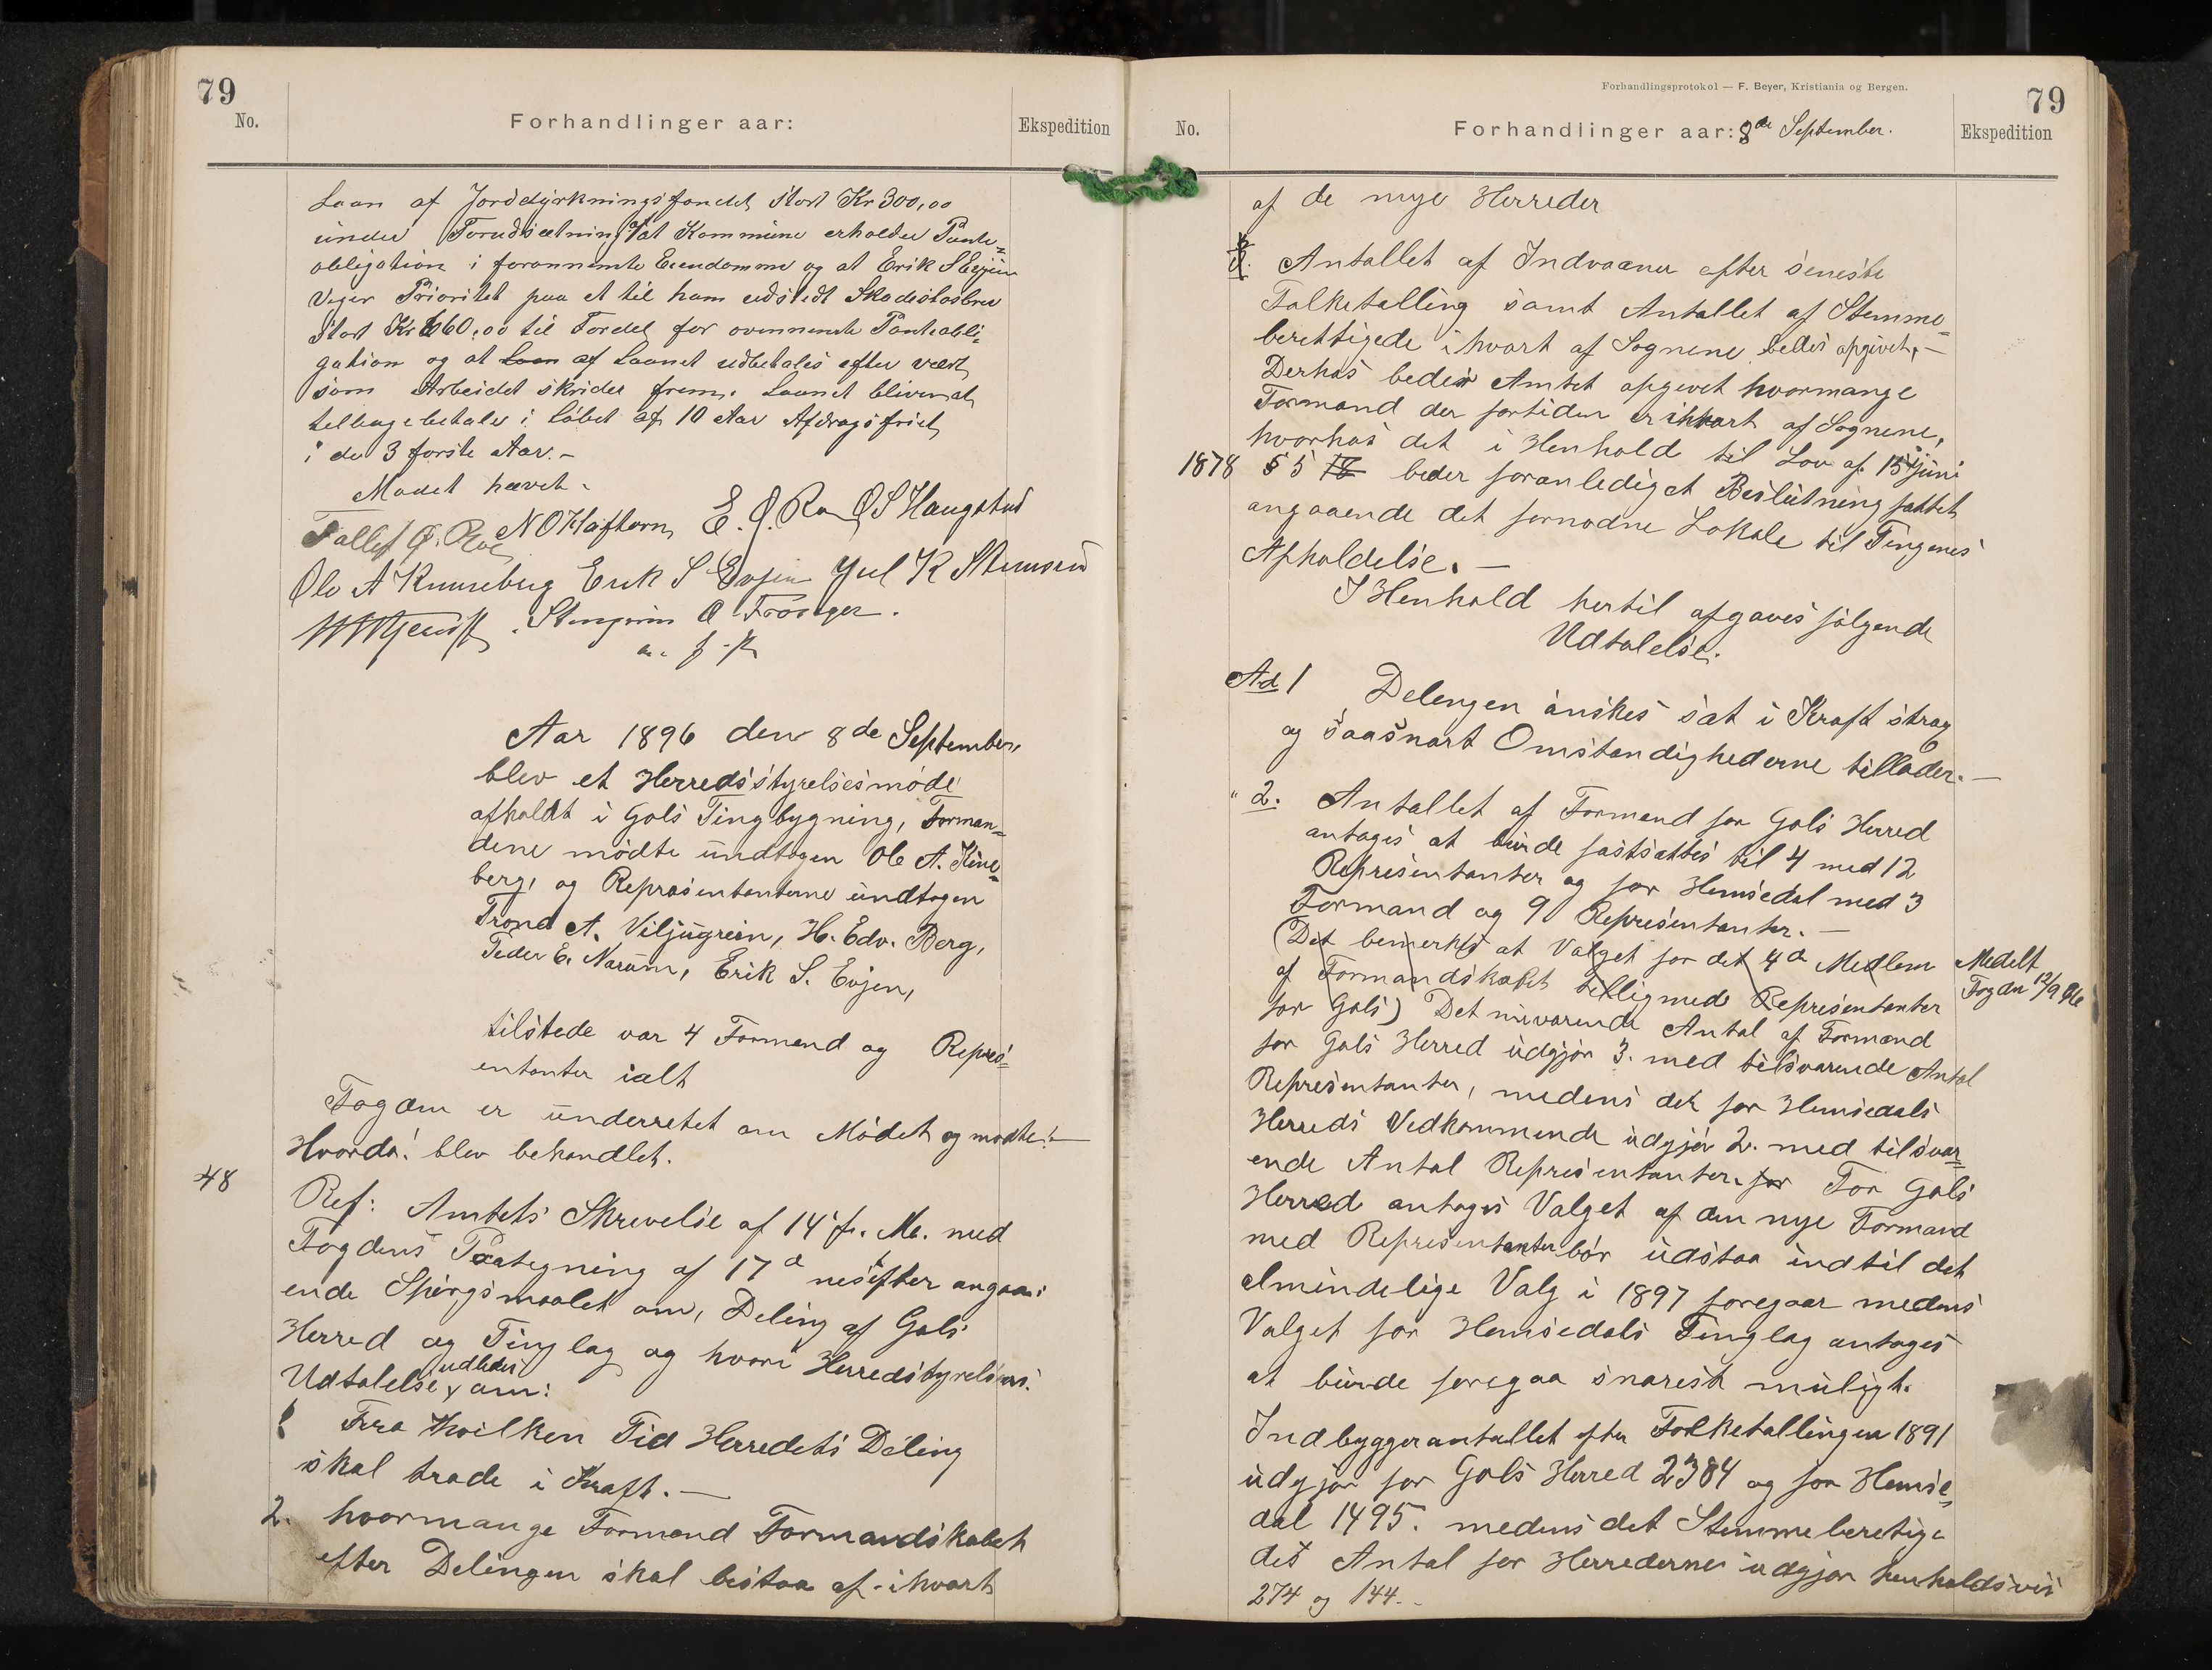 79
No.
Forhandlinger aar:
Ekspedition
Laan af Jorddyrkningsfondet stort Kr 300,00
under Forudsætning at Kommune erholder Pante-
obligation i forannemte Eiendomme og at Erik S Evjen
viger Prioritet paa et til ham udstedt Skadesløsbrev
stort Kr 660,00 til Fordel for ovennemte Panteobli-
gation og at Laan af Laanet udbetales efter vært
som Arbeidet skrider frem. Laanet bliver at
tilbagebetale i Løbet af 10 Aar Afdragsfrit
i de 3 første Aar.-
Mødet hævet.
N O Kløfthorn E. O. Ro O S Haugstad
Tollef O. Roe
Ole A Kinneberg Erik S Evjen Juel K Stensrud
Stengrim O Frøsager.
Aar 1896 den 8de September,
blev et Herredsstyrelsesmøde
afholdt i Gols Tingbygning, Forman-
dene mødte undtagen Ole A. Kine-
berg, og Repræsentanterne undtagen
Trond A. Viljugrein, H. Edv. Berg,
Peder E. Narum, Erik S. Evjen,
tilstede var 4 Formend og Repres-
entanter ialt
Fogden er underrettet om Mødet og mødte.-
Hvorda! blev behandlet.
48
Ref: Amtets Skrivelse af 14' f. M. med
Fogdens Paategning af 17d nestefter angaa-
ende Spørgsmaalet om, Deling af Gols
Herred og Tinglag og hvori Herredstyrelsens
udbedes
Udtalelse, om:
1 Fra hvilken Tid Herredets Deling
skal træde i Kraft.-
2. hvormange Formend Formandskabet
efter Delingen skal bestaa af i hvert
Forhandlingsprotokol — F. Beyer, Kristiania og Bergen.
79
No.
Forhandlinger aar: 8de September.
Ekspedition
af de nye Herreder
3. Antallet af Indvaaner efter seneste
Folketelling samt Antallet af Stemme-
berettigede i hvert af Sognene bedes opgivet,-
Derhos beder Amtet opgivet hvormange
Formend der fortiden er i hvert af Sognene,
hvorhos det i Henhold til Lov af 15' Juni
1878 § 5 18 beder foranlediget Beslutning fattet
angaaende det fornødne Lokale til Tingenes
Afholdelse.-
I Henhold hertil afgaves følgende
Udtalelse.
Ad 1 Delingen ønskes sat i Kraft strax
og saasnart Omstendighederne tillader.-
" 2. Antallet af Formend for Gols Herred
antages at burde fastsættes til 4 med 12
Representanter og for Hemsedal med 3
Formend og 9 Representanter.-
(Det bemerkes at Valget for det 4de Medlem
af Formandskabet tilligemed Representanter
for Gols) Det nuværende Antal af Formend
Medelt
Fogden 12/9 96
for Gols Herred udgjør 3. med tilsvarende Antal
Representanter, medens det for Hemsedals
Herreds Vedkommende udgjør 2. med tilsvar-
ende Antal Representanter. for For Gols
Herred antages Valget af den nye Formand
med Representanter bør udstaa indtil det
almindelige Valg i 1897 foregaar medens
Valget for Hemsedals Tinglag antages
at burde foregaa snarest muligt.
Indbyggerantallet efter Folketellingen 1891
udgjør for Gols Herred 2384 og for Hemse-
dal 1495. medens det Stemmeberettige
det Antal for Herrederne udgjør henholdsvis
274 og 144.-